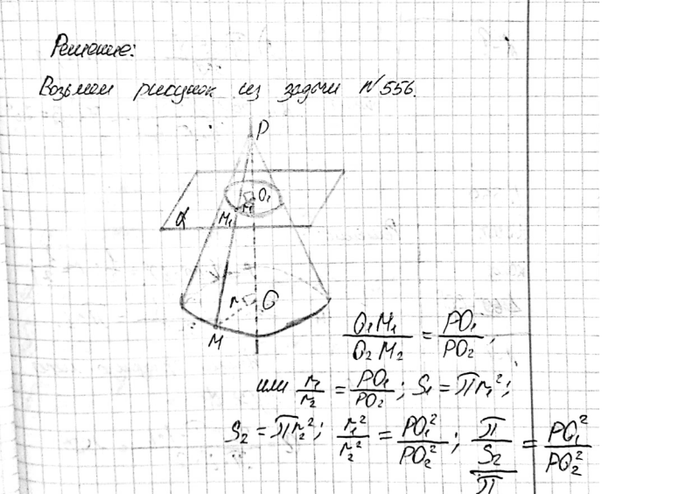 Решение:
Возьмем рисунок из задачи №556.
P
O₁
M₁ r₁
α
r O
M
O₁M₁/O₂M₂ = PO₁/PO₂;
или r₁/r₂ = PO₁/PO₂; S₁ = πr₁²;
S₂ = πr₂²; r₁²/r₂² = PO₁²/PO₂²; π/(S₂/π) = PO₁²/PO₂²